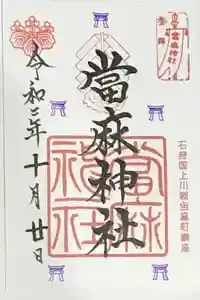 石狩国上川郡當麻町鎮座
當麻神社
令和三年十月廿日
當麻神社